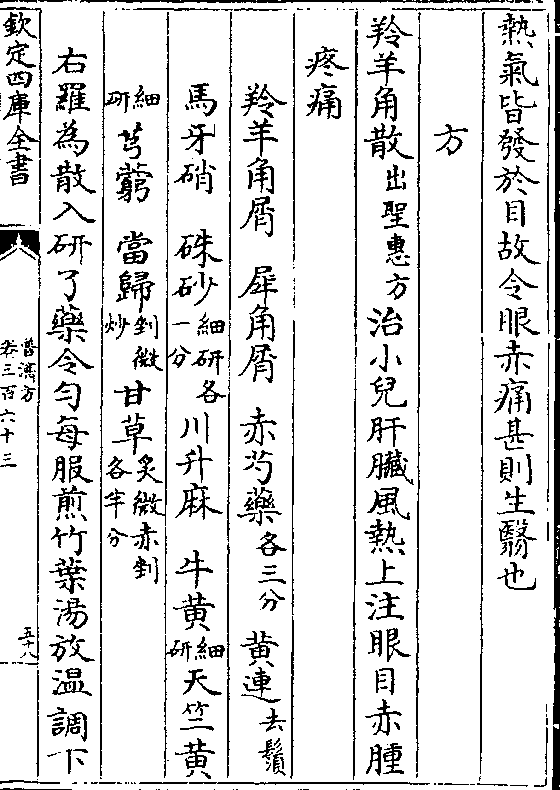 熱氣皆發於目故令眼赤痛甚則生翳也
方
羚羊角散出聖惠方治小兒肝臟風熱上注眼目赤腫
疼痛
羚羊角屑 犀角屑 赤芍藥各三分 黄連去鬚
馬牙硝 硃砂細研各一分 川升麻 牛黄細研 天竺黄
細研 芎藭 當歸剉微炒 甘草炙微赤剉各半分
右羅為散入研了藥令匀每服煎竹葉湯放温調下
欽定四庫全書
普濟方
卷三百六十三
五十八